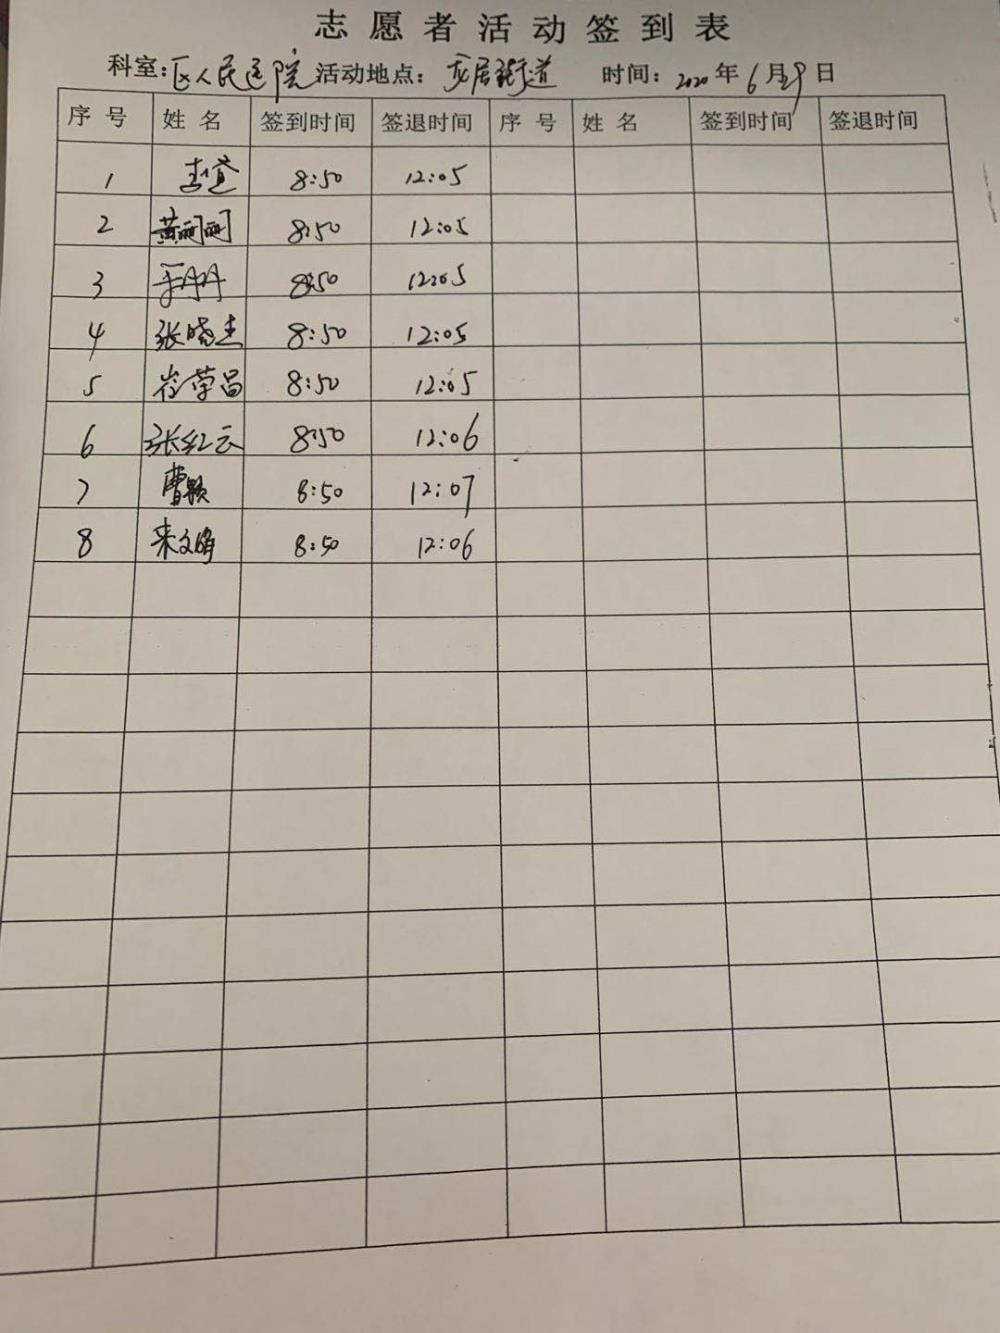 志愿者活动签到表
科室:区人民医院 活动地点:龙居街道 时间:2020年6月29日
序号 姓名 签到时间 签退时间 序号 姓名 签到时间 签退时间
1 8:50 12:05
2 黄丽丽 8:50 12:05
3 8:50 12:05
4 张晓杰 8:50 12:05
5 崔荣昌 8:50 12:05
6 张红云 8:50 12:06
7 曹颖 8:50 12:07
8 8:50 12:06